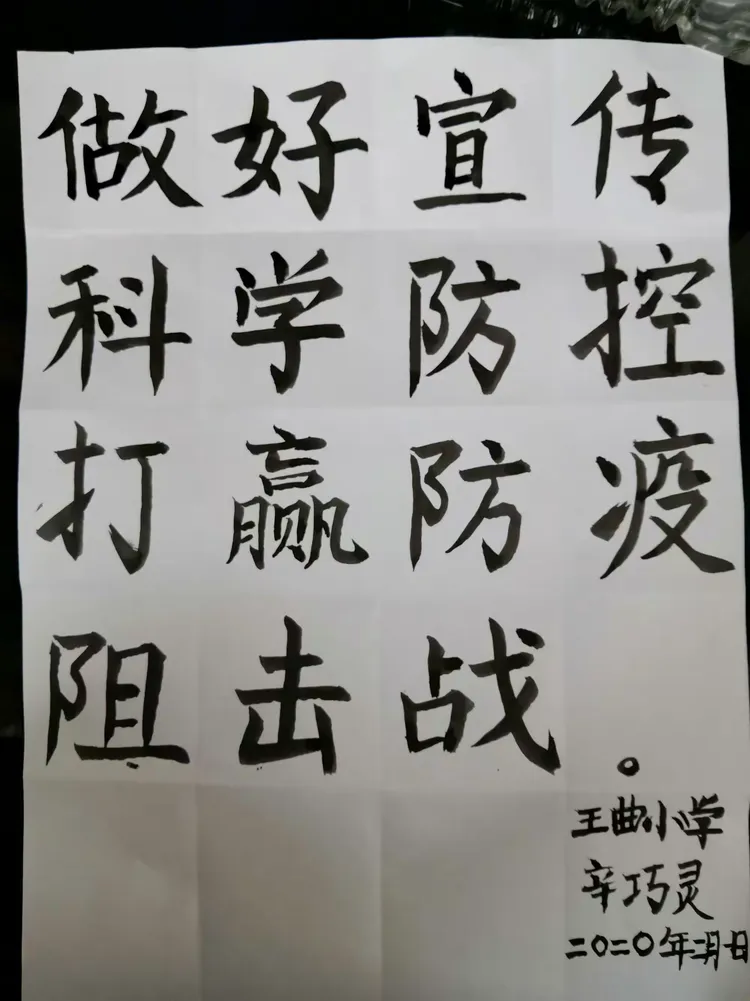 做好宣传
科学防控
打赢防疫
阻击战。
王曲小学
辛巧灵
二〇二〇年二月日